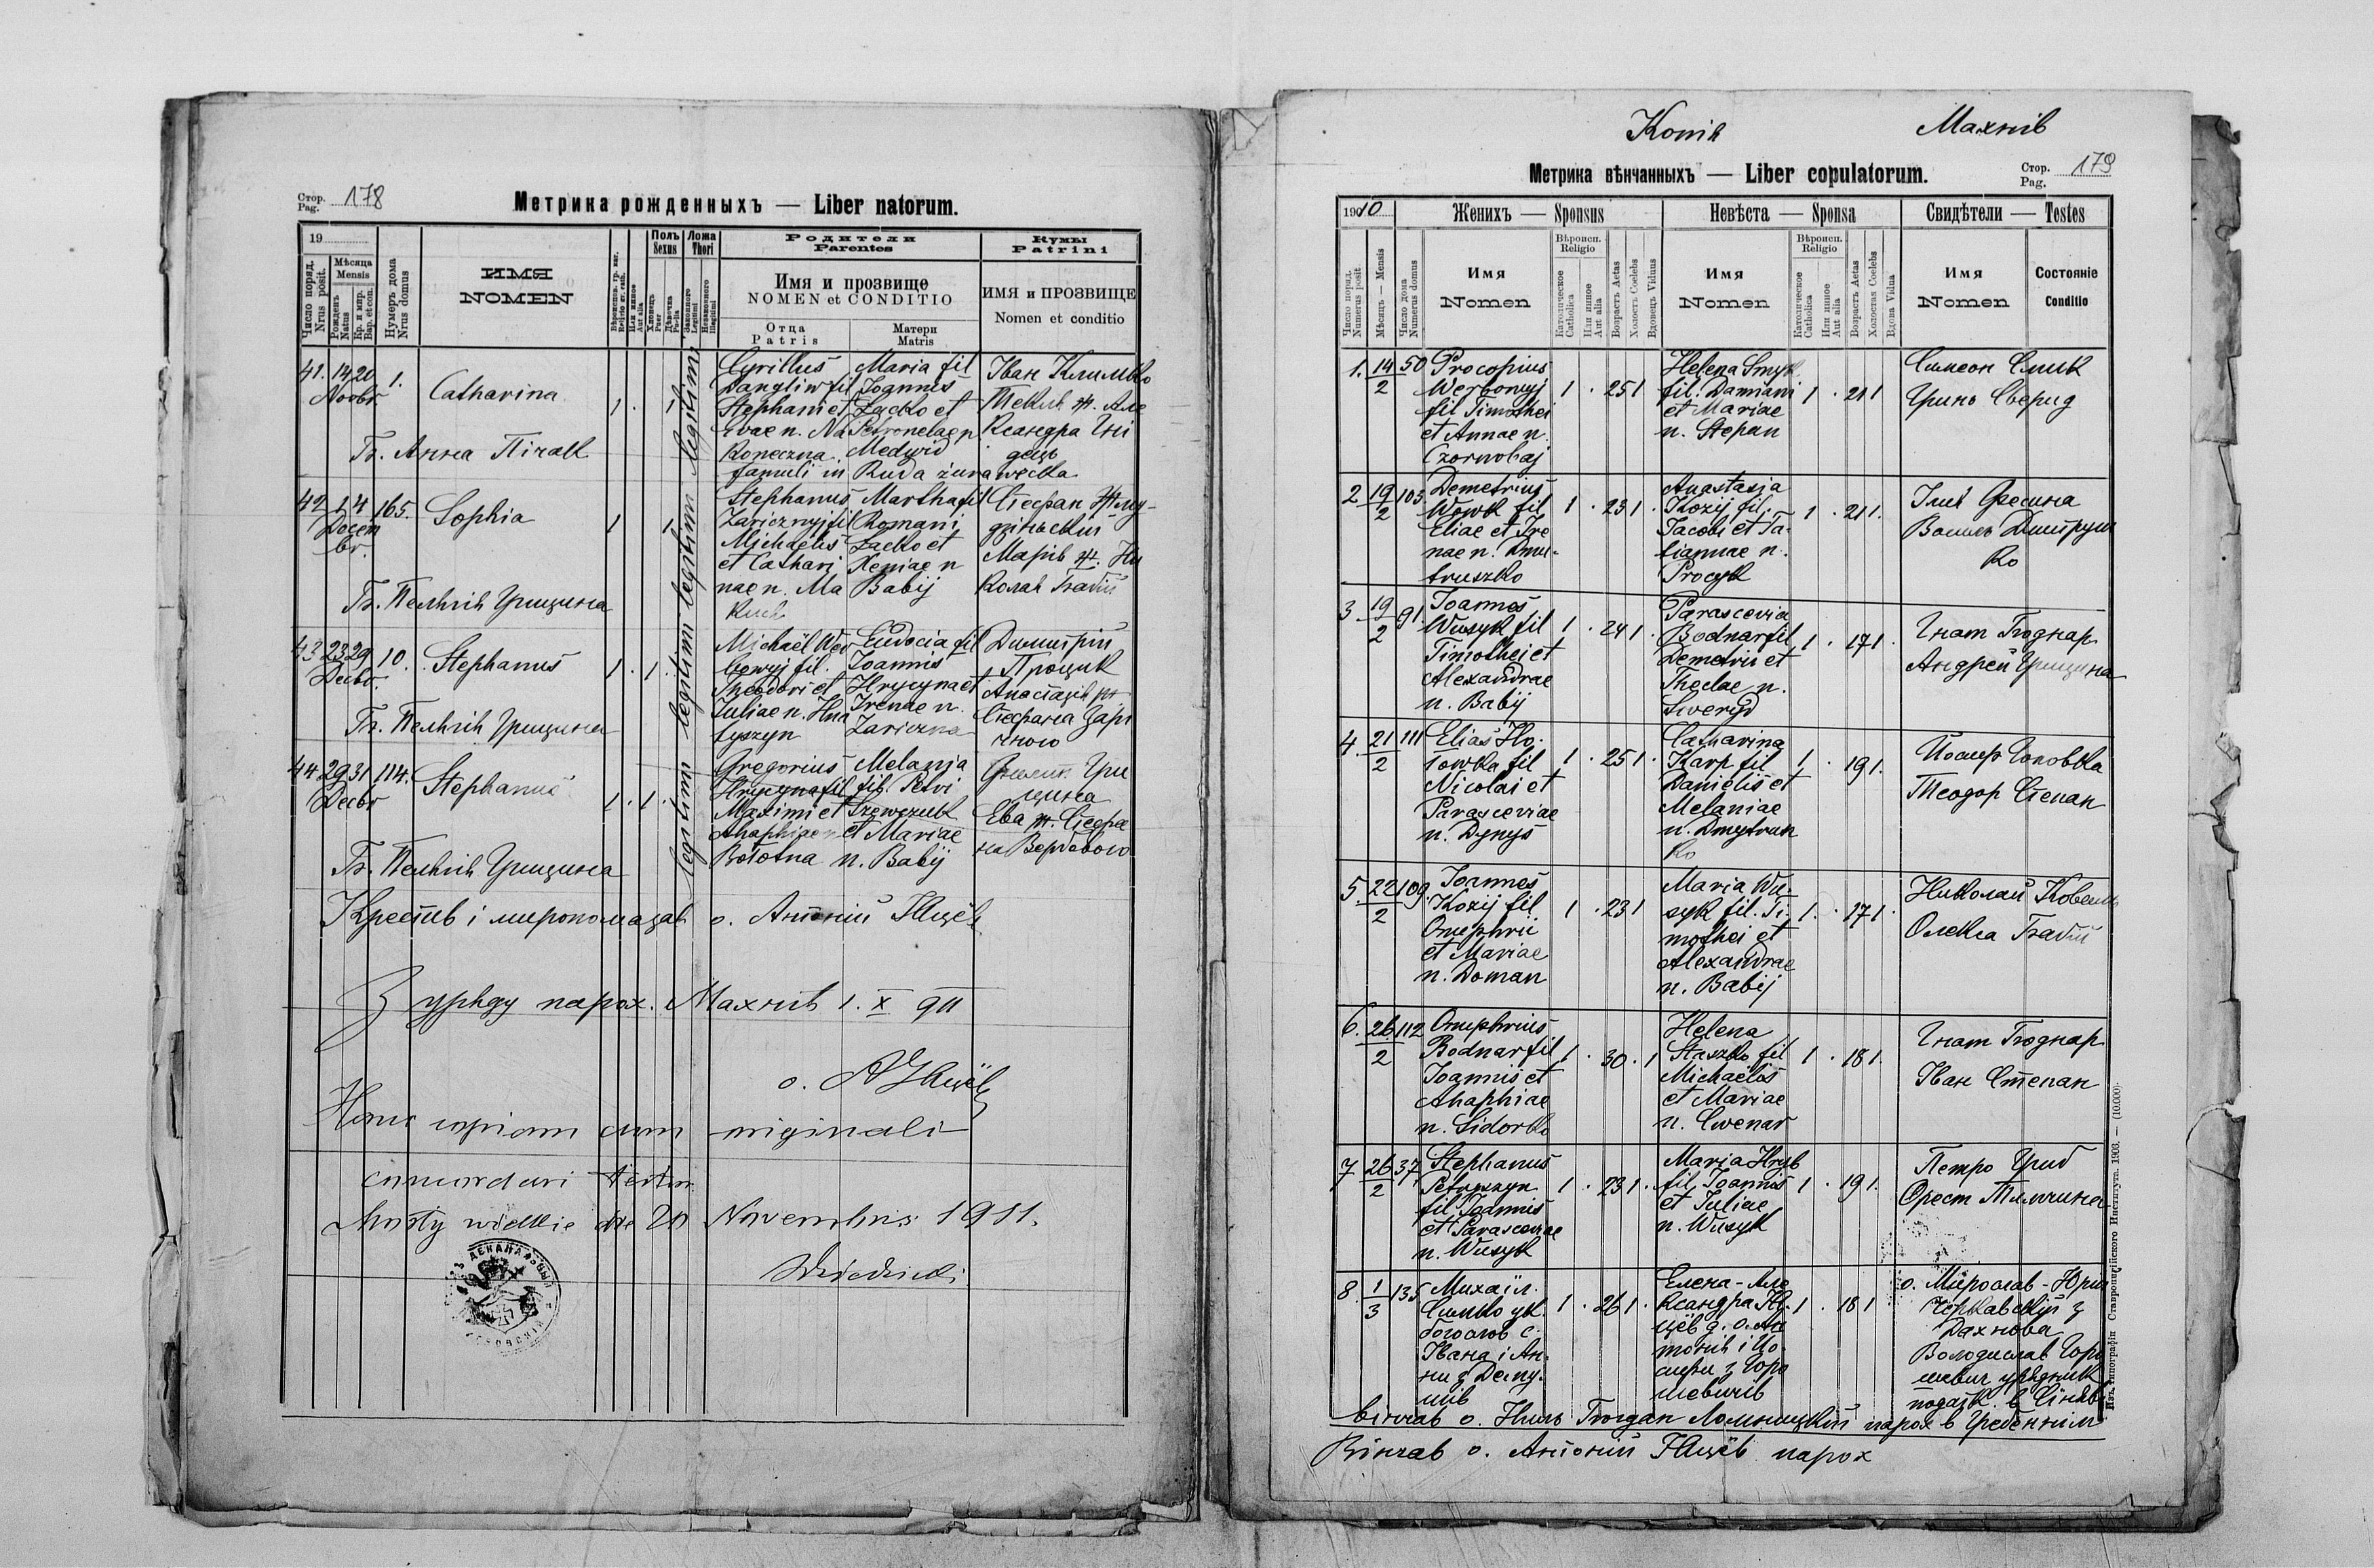 Стор. Pag. 178
Метрика рожденныхъ — Liber natorum.
19
Число поряд. Nrus posit.
Мѣсяца Mensis
Рожденъ Natus
Кр. и мир. Bap. et con.
Нумеръ дома Nrus domus
ИМЯ
NOMEN
Или иное Aut alia
Полъ Sexus
Хлопецъ Puer
Дѣвочка Puella
Ложа Thori
Законного Legitimi
Незаконного Illegitimi
Родители
Parentes
Имя и прозвище
NOMEN et CONDITIO
Отца
Patris
Матери
Matris
Кумы
Patrini
ИМЯ и ПРОЗВИЩЕ
Nomen et conditio
41. 14 20 1. Catharina 1. 1 legitimi
Novbr
Cyrillus
Dangliw fil
Stephani et
Evae n. Na
Koneczna
famuli in Ruda żurawecka
Maria fil
Joannis
Łacko et
Petronelae n
Medwid
Іван Климко
Текля ж. Але
ксандра Гні
дець
Бг. Анна Пірат
42 1 4 165. Sophia 1 1. legitimi
Decem
br.
Stephanus
Zaricznyj fil
Michaelis
et Cathari
nae n. Ma
Martha fil
Romani
Łacko et
Xeniae n
Babij
Стефан Жму-
дзіньский
Марія ж. Ни
колая Бабій
Бг. Пелягія Грицина
43 23 29 10. Stephanus 1. 1. legitimi
Decbr.
Michaël Wer
bowyj fil.
Theodori et
Juliae n. Hna
tyszyn
Eudocia fil
Joannis
Hrycyna et
Irenae n.
Zariczna
Димитрій
Процик
Анастазія ж
Стефана Зарі
чного
Бг. Пелягія Грицина
44 29 31 114. Stephanus 1. 1. legitimi
Decbr
Gregorius
Hrycyna fil
Maximi et
Ahaphiae n
Bołotna
Melania
fil. Petri
Szewczuk
et Mariae
n. Babij
Гри
цина
Ева ж. Стефа
на Вербового
Бг. Пелягія Грицина
Крестив і миропомазав о. Антоній
З уряду парох. Махнів 1. X 911
Hanc copiam cum originali
concordari testor.
Mosty wielkie die 20 Novembris 1911.
Копія Махнів
Метрика вѣнчанныхъ — Liber copulatorum.
Стор. Pag. 179
1910
Женихъ — Sponsus
Невѣста — Sponsa
Свидѣтели — Testes
Число поряд. Numerus posit
Мѣсяцъ — Mensis
Число дома Numerus domus
Имя
Nomen
Вѣроисп. Religio
Католическое Catholica
Или инное Aut alia
Возрастъ Aetas
Холостъ Coelebs
Вдовецъ Viduus
Имя
Nomen
Вѣроисп. Religio
Католическое Catholica
Или инное Aut alia
Возрастъ Aetas
Холостая Coelebs
Вдова Vidua
Имя
Nomen
Состояніе
Conditio
1. 14/2 50
Procopius
Werbowyj
fil Timothei
et Annae n.
Czornobaj
1 . 25 1
Helena Smyk
fil. Damiani
et Mariae
n. Stepan
1 . 21 1
Симеон Смик
Гринь Сверид
2 19/2 103.
Demetrius
Wowk fil
Eliae et Ire
nae n. Dmy-
truszko
1 . 23 1.
Anastasia
Kozij fil.
Jacobi et Ta-
tiannae n.
Procyk
1 . 21 1.
Ілия Фесина
Василь Дмитруш
ко
3 19/2 91
Joannes
Wusyk fil
Timothei et
Alexandrae
n. Babij
1 . 24 1.
Parascevia
Bodnar fil
Demetrii et
Theclae n.
Sweryd
1. 17 1.
Гнат Боднар
Андрей Грицина
4. 21/2 111
Elias Ho-
łowka fil
Nicolai et
Parasceviae
n. Dynys
1 . 25 1.
Catharina
Karp fil
Danielis et
Melaniae
n. Dmytrun
ko
1 . 19 1.
Йосиф Головка
Теодор Степан
5. 22/2 109
Joannes
Kozij fil
Onuphrii
et Mariae
n. Doman
1 . 23 1
Maria Wu-
syk fil. Ti-
mothei et
Alexandrae
n. Babij
1. . 17 1.
Николай
Олекса Бабій
6. 26/2 112
Onuphrius
Bodnar fil
Joannis et
Ahaphiae
n. Sidorko
1 . 30 . 1
Helena
Staszko fil
Michaëlis
et Mariae
n. Cwenar
1 . 18 1.
Гнат Боднар
Іван Степан
7 26/2 37
Stephanus
Petryszyn
fil Joannis
et Parasceviae
n. Wusyk
1 . 23 1.
Maria Hryb
fil. Joannis
et Juliae
n. Wusyk
1 . 19 1.
Петро Гриб
Орест
8. 1/3 135
Михаіл
Симко ук.
богослов с.
Івана і Ан-
ни з
1 . 26 1.
Елена-Але
ксандра
д. о. Ан
тонія і Йо-
сифи з Горо
шевичів
1 . 18 1
о. Мирослав-Юрій
Чернавский з
Дахнова
Володислав Горо
шевич урядник
податк. в
вінчав о. Богдан Ломницкий парох в Гребеннім
Вінчав о. Антоній парох
Изъ типографіи Ставропигійского Института. 1903. — (10.000).